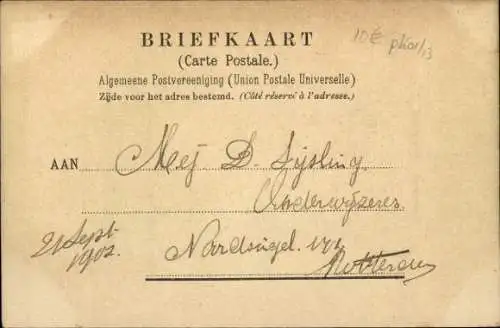 10€
BRIEFKAART
(Carte Postale.)
Algemeene Postvereeniging (Union Postale Universelle)
Zijde voor het adres bestemd. (Côté réservé à l'adresse.)
AAN Mej D. Sijsling
Onderwijzeres
21 Sept
1902.
Noordsingel
Rotterdam